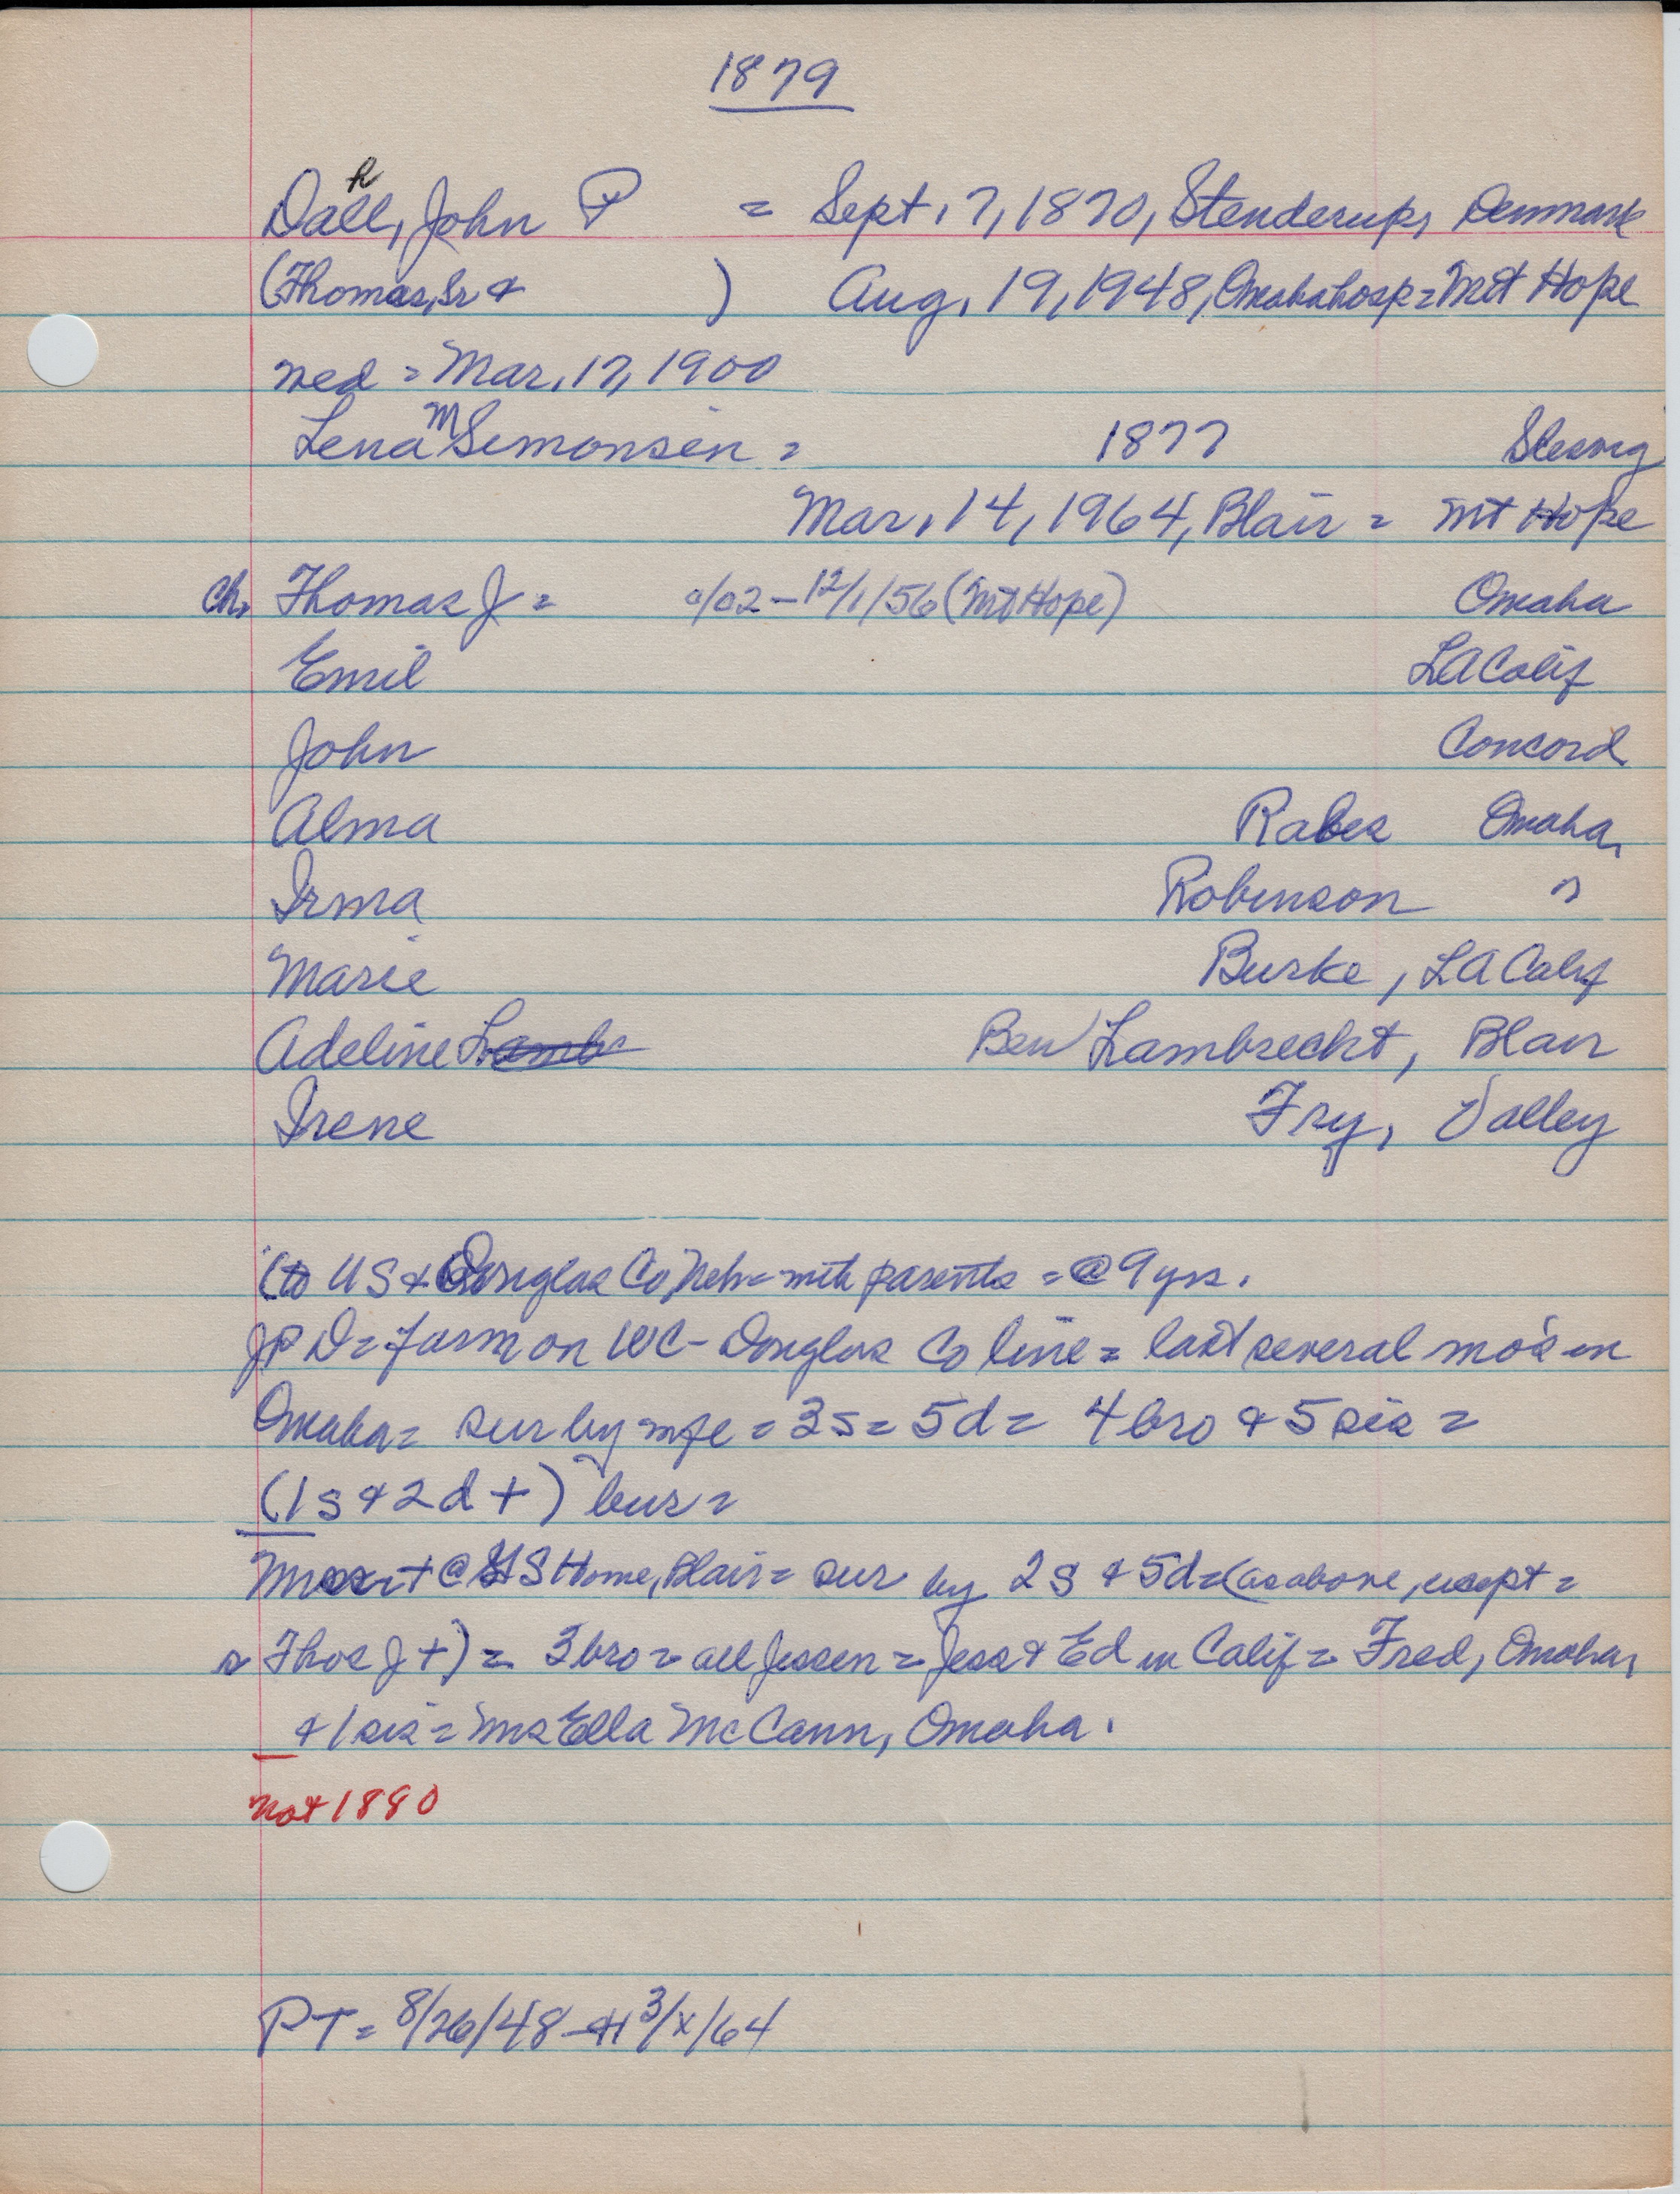 1879
Dahl, John P = Sept. 7, 1870, Stenderup, Denmark
(Thomas, Sr & ) Aug. 19, 1948, Omaha hosp = Mt Hope
wed = Mar. 17, 1900
Lena M Simonsen = 1877 Slesvig
Mar. 14, 1964, Blair = Mt Hope
Ch. Thomas J = /02 - 12/1/56 (Mt Hope) Omaha
Emil LA Calif
John Concord
Alma Rabes Omaha,
Irma Robinson "
Marie Burke, LA Calif
Adeline Lamb Ben Lambrecht, Blair
Irene Fry, Valley
(to US & Douglas Co Neb = with parents = @ 9 yrs.
JPD = farm on WC - Douglas Co line = last several mo's in
Omaha = sur by wife = 3s = 5d = 4 bro & 5 sis =
(1s & 2d +) bur =
+ @ GS Home, Blair = sur by 2s & 5d = (as above, except =
s Thos J +) = 3 bro = all Jessen = Jess & Ed in Calif = Fred, Omaha,
& 1 sis = Mrs Ella McCann, Omaha.
Not 1880
PT = 8/26/48 - 3/x/64